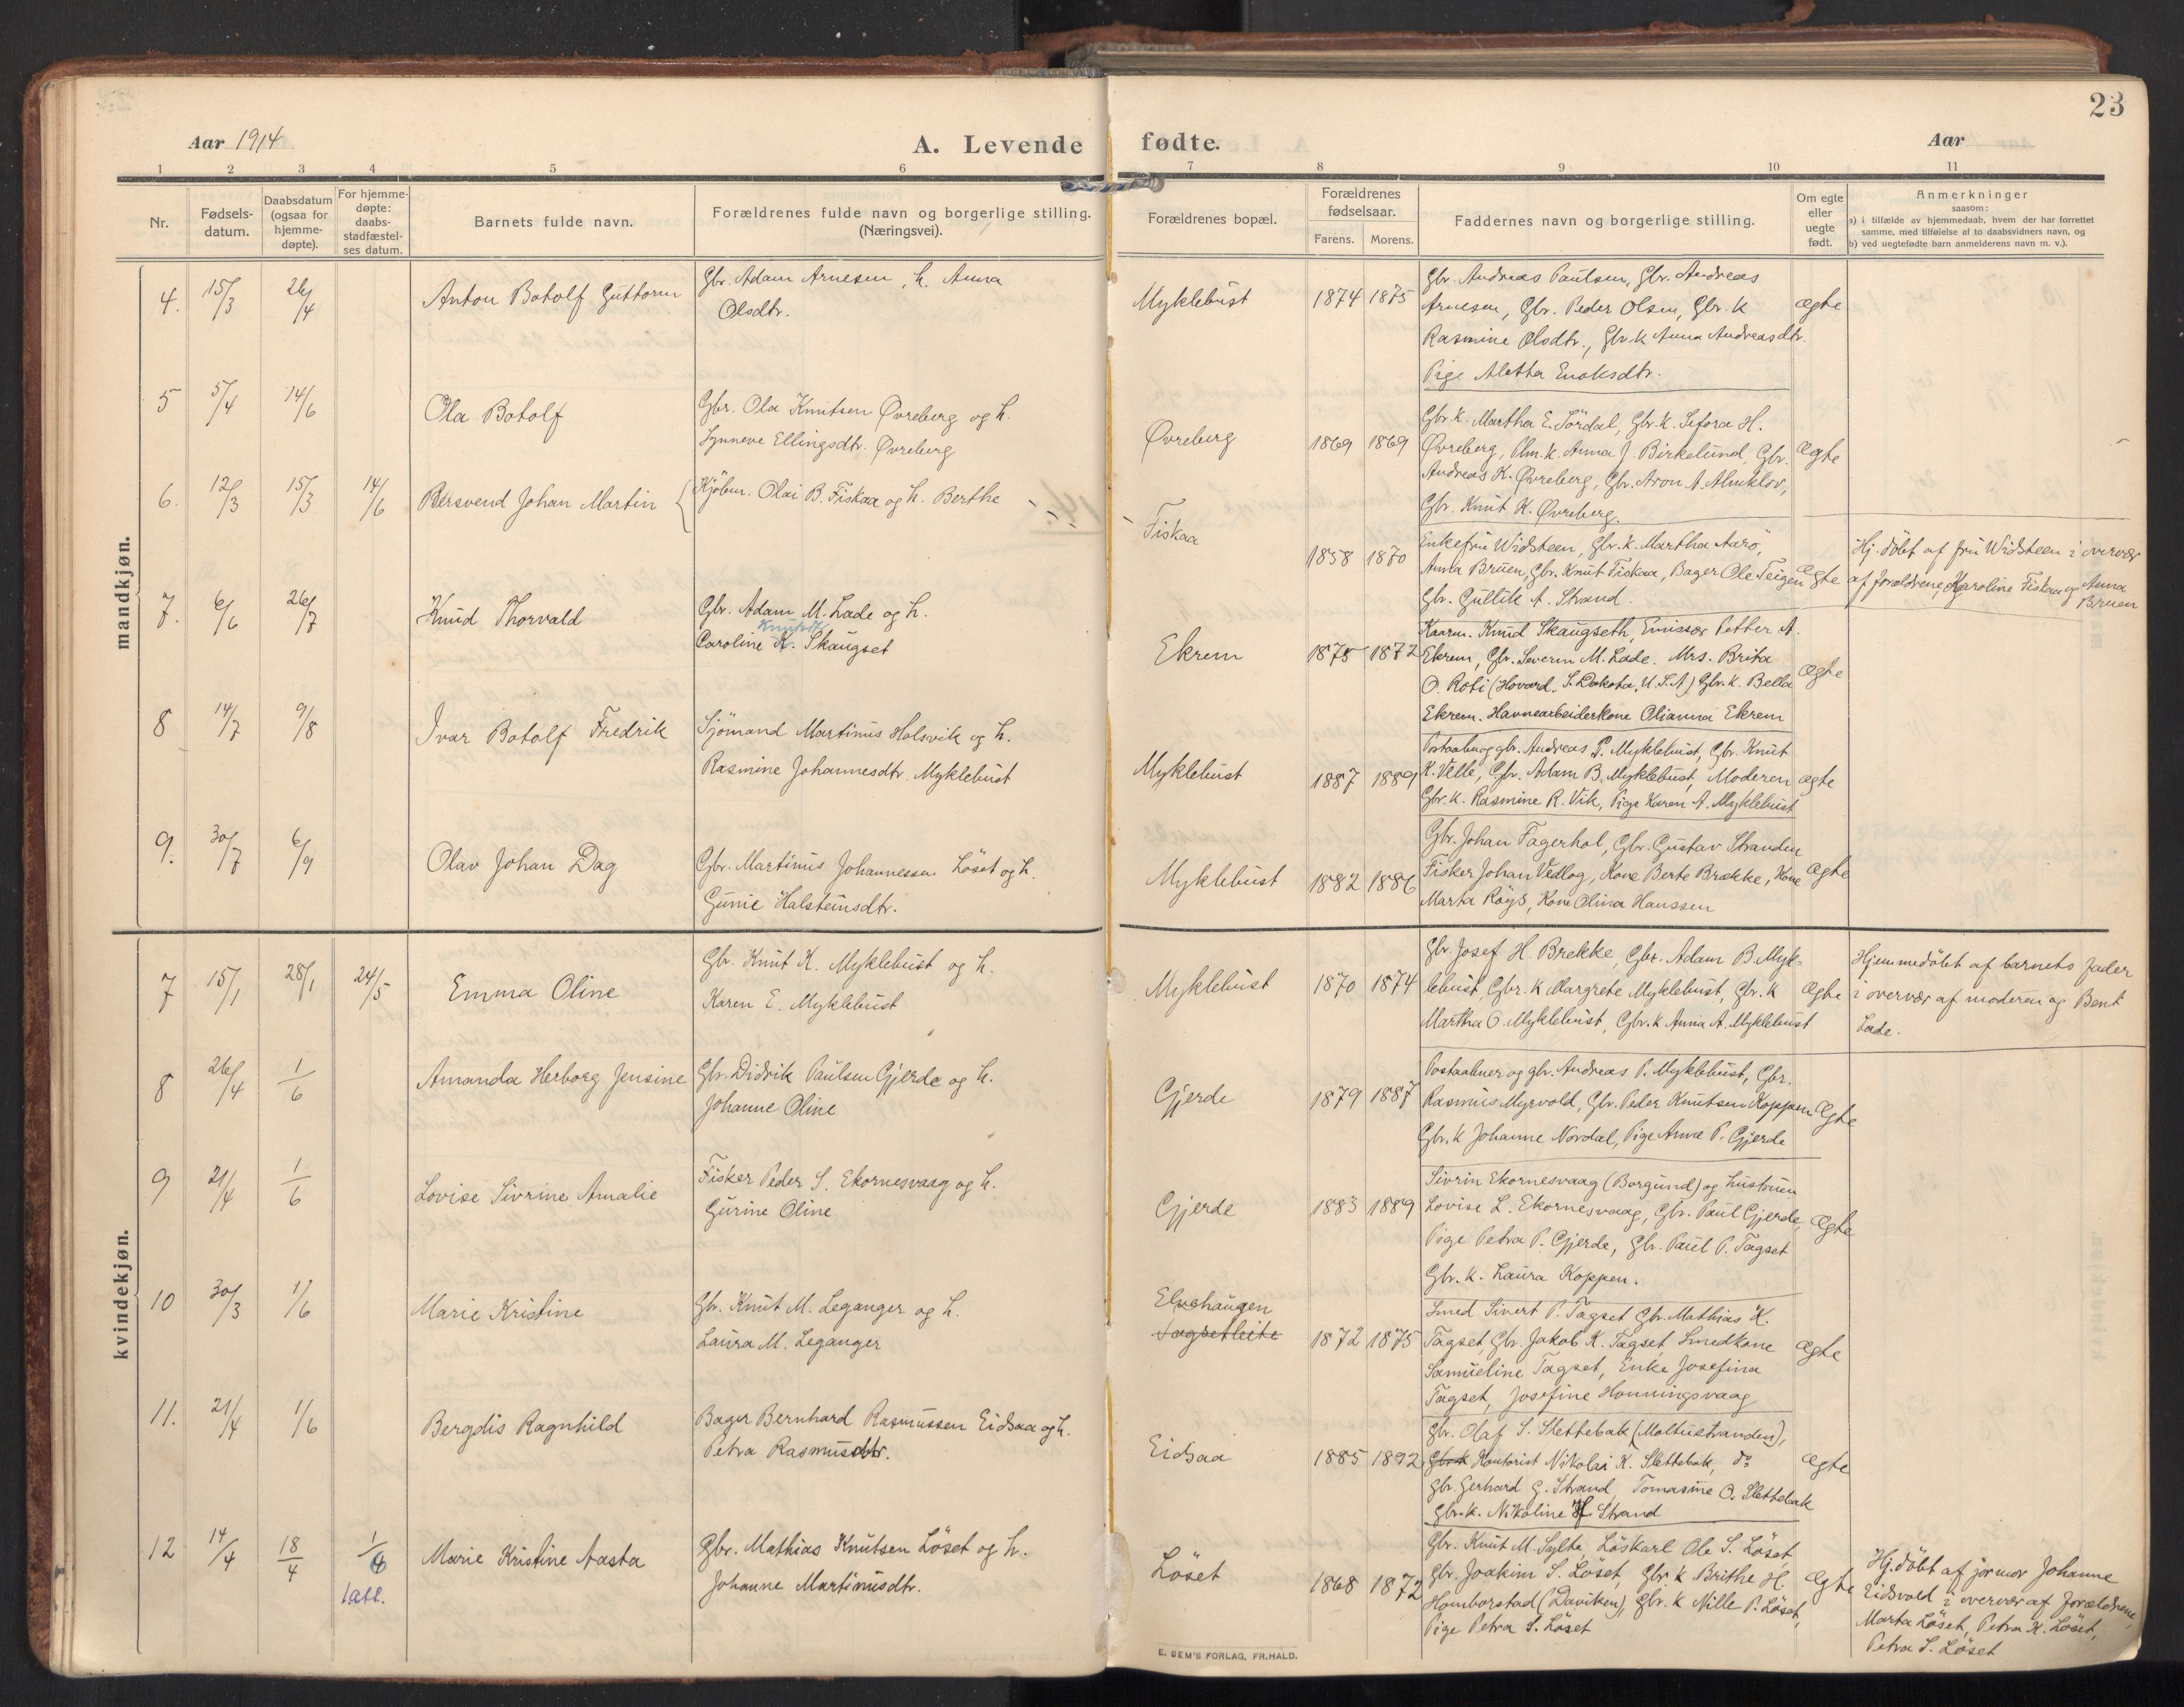 23
Aar 1914
A. Levende
fødte.
Aar
1 2 3 4 5 6 7 8 9 10 11
Nr.
Fødsels-
datum.
Daabsdatum
(ogsaa for
hjemme-
døpte).
For hjemme-
døpte:
daabs-
stadfæstel-
ses datum.
Barnets fulde navn.
Forældrenes fulde navn og borgerlige stilling.
(Næringsvei).
Forældrenes bopæl.
Forældrenes
fødselsaar.
Farens. Morens.
Faddernes navn og borgerlige stilling.
Om egte
eller
uegte
født.
Anmerkninger
saasom:
a) i tilfælde av hjemmedaab, hvem der har forrettet
samme, med tilføielse af to daabsvidners navn, og
b) ved uegtefødte barn anmelderens navn m. v.).
mandkjøn.
4. 15/3 26/4
Anton Botolf Guttorm
Gbr. Adam Arnesen, h. Anna
Olsdtr.
Myklebust
1874 1875
Gbr. Andreas Paulsen, Gbr. Andreas
Arnesen, Gbr. Peder Olsen, Gbr. k
Rasmine Olsdtr., Gbr. k Anna Andreasdtr.
Pige Aletha Enoksdtr.
Ægte
5 5/4 14/6
Ola Botolf
Gbr. Ola Knutsen Øvreberg og h.
Synneve Ellingsdtr. Øvreberg
Øvreberg
1869 1869
Gbr. k. Martha E. Sördal, Gbr. k. Sefora H.
Øvreberg, Plm. k. Anna J. Birkelund, Gbr.
Andreas K. Øvreberg, Gbr. Aron A. Almklov,
Gbr. Knut K. Øvreberg.
Ægte
6. 12/3 15/3 14/6
Bersvend Johan Martin
Kjöbm. Olai B. Fiskaa og h. Berthe
Fiskaa
1858 1870
Enkefru Widsteen, Gbr. k. Martha Aarö,
Anna Bruen, Gbr. Knut Fiskaa, Bager Ole Teigen
Gbr. Gullik A. Strand.
Ægte
Hj. döbt af fru Widsteen i overvær
af forældrene, Karoline Fiskaa og Anna
Bruen
7. 6/6 26/7
Knud Thorvald
Gbr. Adam M. Lade og h.
Knutsdtr
Caroline K. Skaugset
Ekrem
1875 1872
Kaarm. Knud Skaugseth, Emissær Petter A.
Ekrem, Gbr. Severin M. Lade. Mrs. Brita
O. Roti (Howard. S. Dakota, U.S.A) Gbr. k. Bella
Ekrem. Havnearbeiderkone Olianna Ekrem
Ægte
8 14/7 9/8
Ivar Botolf Fredrik
Sjömand Martinus Halsvik og h.
Rasmine Johannesdtr. Myklebust
Myklebust
1887 1889
Postaabn og gbr. Andreas P. Myklebust, Gbr. Knut
K. Velle, Gbr. Adam B. Myklebust, Moderen
Gbr. k. Rasmine R. Vik, Pige Karen A. Myklebust
ægte
9. 30/7 6/9
Olav Johan Dag
Gbr. Martinus Johannessen Löset og h.
Gunie Halsteinsdtr.
Myklebust
1882 1886
Gbr. Johan Fagerhol, Gbr. Gustav Stranden
Fisker Johan Vedlog, Kone Berte Brække, Kone
Marta Röys, Kone Olina Hanssen
Ægte
kvindekjøn.
7 15/1 28/1 24/5
Emma Oline
Gbr. Knut K. Myklebust og h.
Karen E. Myklebust
Myklebust
1870 1874
Gbr. Josef H Brekke, Gbr. Adam B Myk-
lebust, Gbr. k Margrete Myklebust, Gbr. k
Martha O. Myklebust, Gbr. k Anna A. Myklebust
Ægte
Hjemmedöbt af barnets fader
i overvær af moderen og Bent
Lade.
8 26/4 1/6
Amanda Herborg Jensine
Gbr. Didrik Paulsen Gjerde og h.
Johanne Oline
Gjerde
1879 1887
Postaabner og gbr. Andreas P. Myklebust, Gbr.
Rasmus Myrvold, Gbr. Peder Knutsen Koppen
Gbr. k Johanne Nordal, Pige Anne P. Gjerde
Ægte
9 21/4 1/6
Lovise Sivrine Amalie
Fisker Peder S. Ekornesvaag og h.
Gurine Oline
Gjerde
1883 1889
Sivrin Ekornesvaag (Borgund) og hustruen
Lovise L. Ekornesvaag, Gbr. Paul Gjerde,
Pige Petra P. Gjerde, Gbr. Paul P. Tagset
Gbr. k. Laura Koppen.
Ægte
10 30/3 1/6
Marie Kristine
Gbr. Knut M. Leganger og h.
Laura M. Leganger
Elvehaugen
Tagsetleite
1872 1875
Smed Sivert P. Tagset Gbr. Mathias K.
Tagset, Gbr. Jakob K. Tagset, Smedkone
Samueline Tagset, Enke Josefina
Tagset, Josefine Honningsvaag
Ægte
11. 21/4 1/6
Bergdis Ragnhild
Bager Bernhard Rasmussen Eidsaa og h.
Petra Rasmusdtr.
Eidsaa
1885 1892
Gbr. Olaf S. Slettebak (Moltustranden),
Gbr. k Kontorist Nikolai K. Slettebak, do
Gbr. Gerhard G. Strand, Tomasine O. Slettebak
Gbr. k. Nikoline H Strand
Ægte
12 14/4 18/4 1/6
Marie Kristine Aasta
Gbr. Mathias Knutsen Löset og h.
Johanne Martinusdtr.
Löset
1868 1872
Gbr. Knut M. Sylte, Löskarl Ole S. Löset,
Gbr. Joakim S. Löset, Gbr. k Brithe H.
Homborstad (Daviken), Gbr. k Nille P. Löset,
Pige Petra S. Löset
Ægte
Hj. döbt af jormor Johanne
Eidsvold i overvær af forældrene,
Marta Löset, Petra K. Löset,
Petra S. Löset
E. SEM'S FORLAG, FR.HALD.